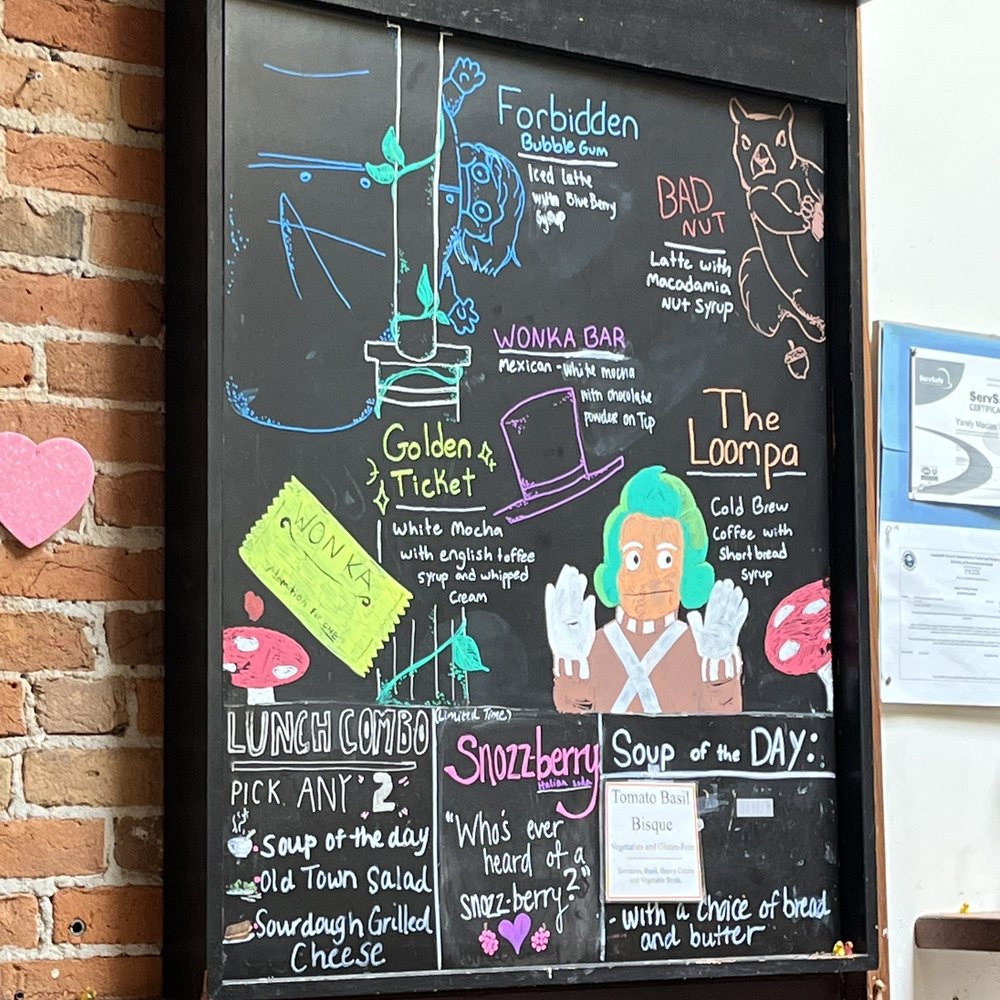 Forbidden
Bubble Gum
Iced latte
with BlueBerry
Syrup
BAD
NUT
Latte with
Macadamia
Nut Syrup
WONKA BAR
Mexican - White mocha
with chocolate
powder on Top
Golden
Ticket
White Mocha
with english toffee
syrup and whipped
Cream
WONKA
The
Loompa
Cold Brew
Coffee with
Short bread
Syrup
LUNCH COMBO
PICK ANY "2"
Soup of the day
Old Town Salad
Sourdough Grilled
Cheese
(Limited Time)
Snozz-berry
Italian Soda
"Who's ever
heard of a
snozz-berry?"
Soup of the DAY:
Tomato Basil
Bisque
Vegetarian and Gluten-Free
Tomatoes, Basil, Heavy Cream
and Vegetable Broth.
- With a choice of bread
and butter
ServSafe